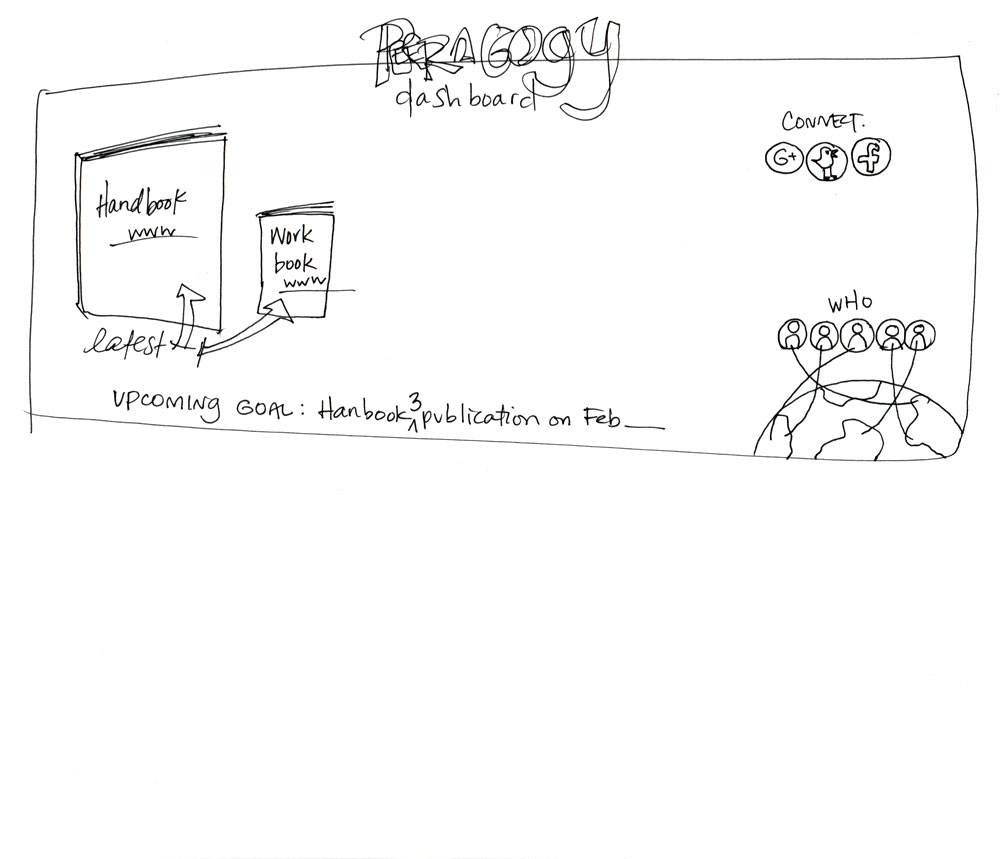 PEERAGOGY
dashboard
CONNECT.
G+
f
Handbook
www
Work
book
www
latest
WHO
UPCOMING GOAL: Hanbook 3 publication on Feb___